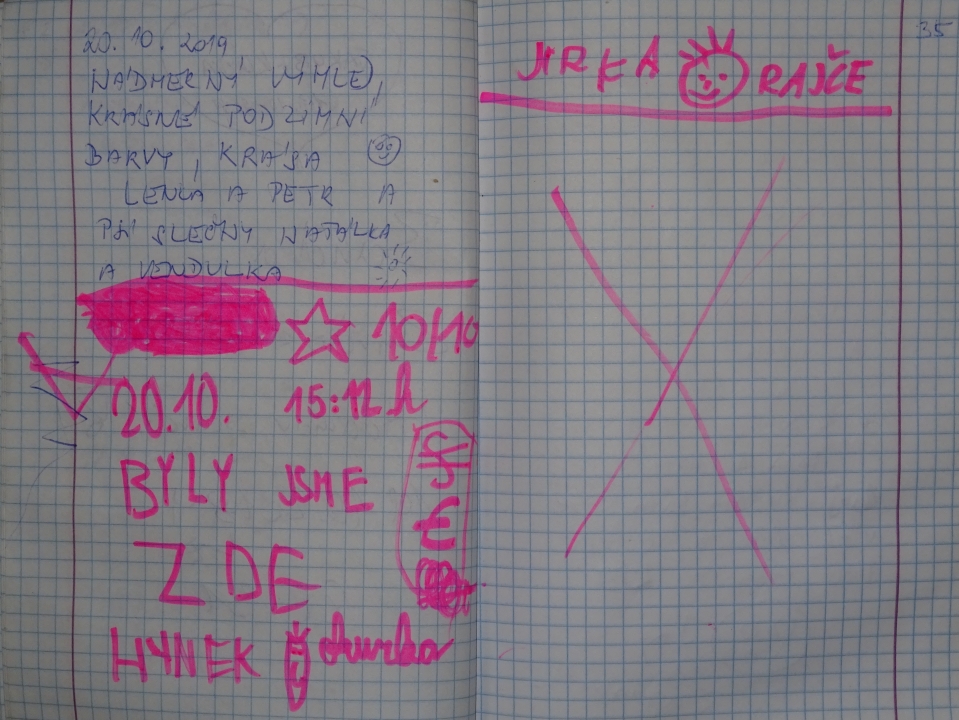 20. 10. 2019
NÁDHERNÝ VÝHLED,
KRÁSNÉ PODZIMNÍ
BARVY, KRÁSA
LENKA A PETR A
PSÍ SLEČNY NATÁLKA
A VENDULKA
10/10
20.10. 15:12 h
BYLY JSME
ZDE
HYNEK okurka
35
MRKA RAJČE